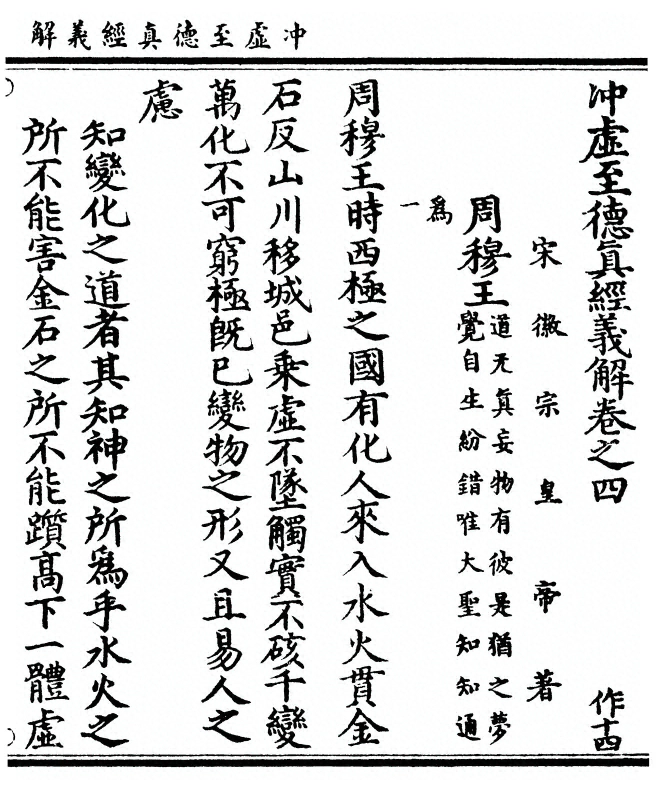 冲虛至德真經義解
冲虛至德真經義解卷之四 作十四
宋徽宗皇帝著
周穆王 道无真妄物有彼是猶之夢
覺自生紛錯唯大聖知知通
爲
一
周穆王時西極之國有化人來入水火貫金
石反山川移城邑乘虛不墜觸實不硋千變
萬化不可窮極旣已變物之形又且易人之
慮
知變化之道者其知神之所爲乎水火之
所不能害金石之所不能躓高下一體虛